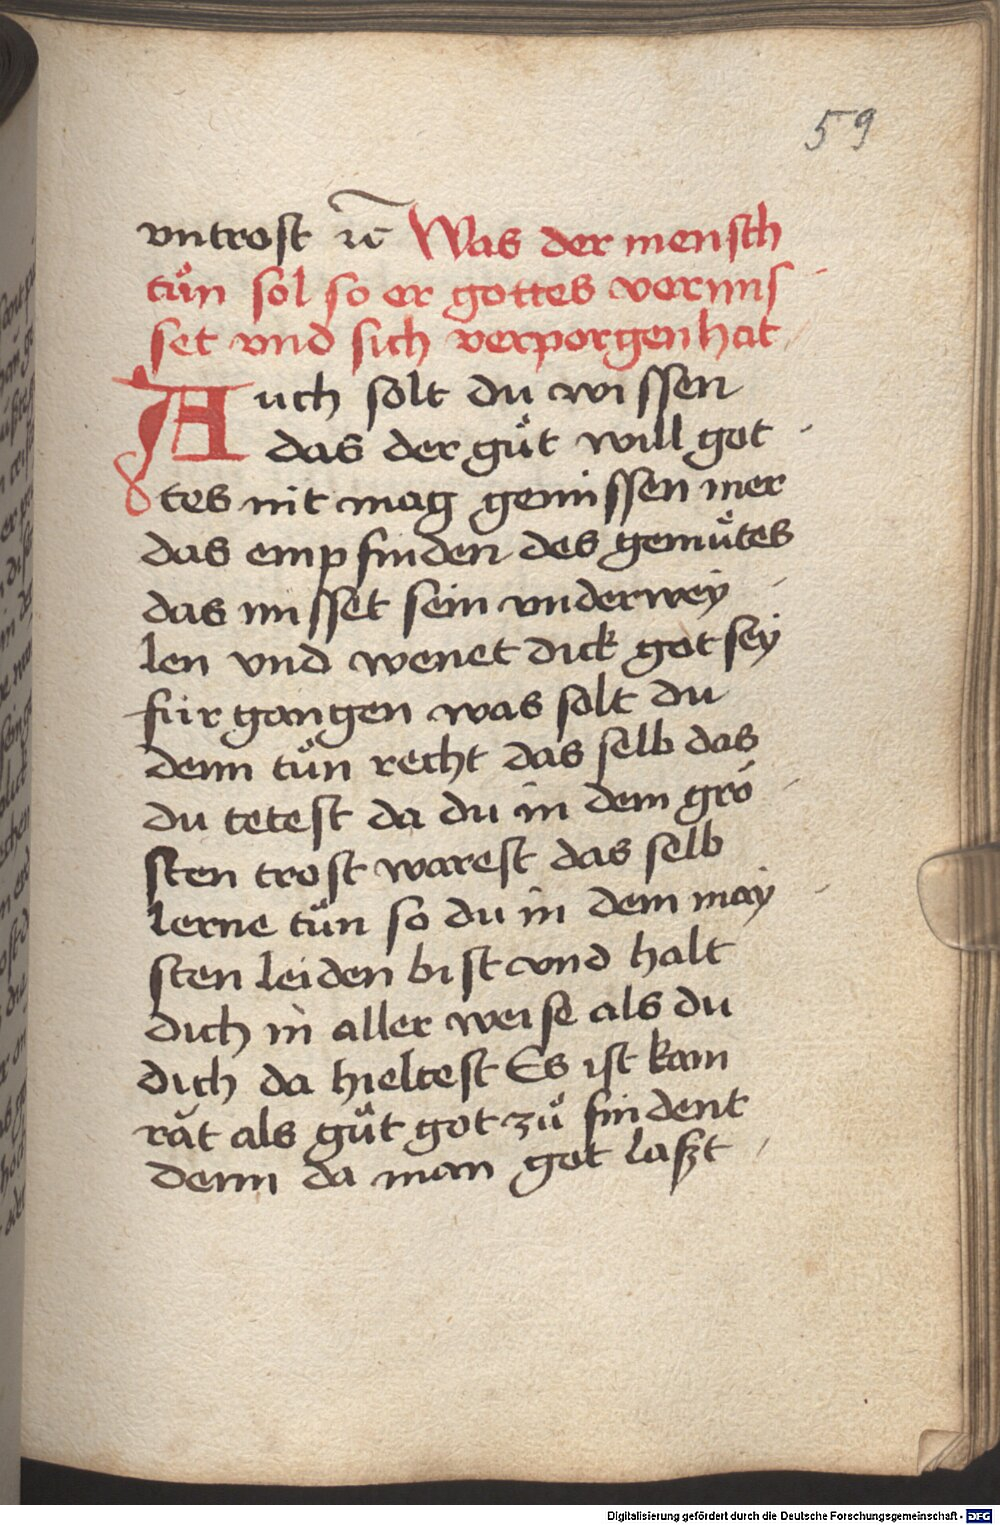 59
vntrost ꝛc̄ Was der mensch
tůn sol so er gottes vermis
set vnd sich verporgen hat
Auch solt du wissen
das der gůt will got
tes nit mag gemissen mer
das empfinden des gemůtes
das misset sein vnderwey
len vnd wenet dick got sey
fürgangen was solt du
denn tůn recht das selb das
du tetest da du in dem grö
sten trost warest das selb
lerne tůn so du in dem may
sten leiden bist vnd halt
dich in aller weise als du
dich da hieltest Es ist kain
rät als gůt got zů findent
denn da man got laßt
Digitalisierung gefördert durch die Deutsche Forschungsgemeinschaft - DFG